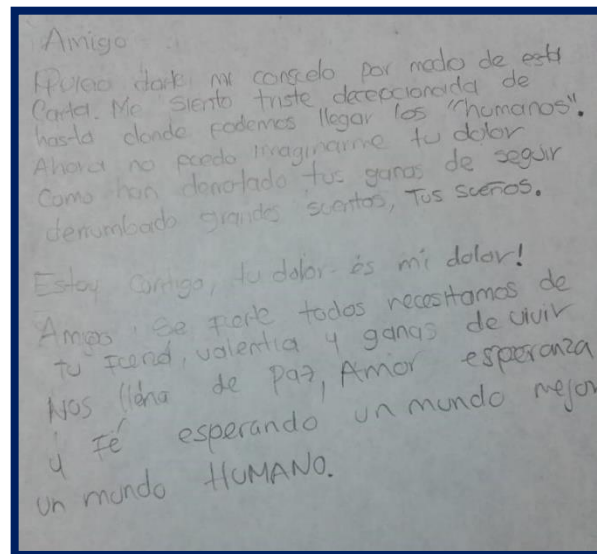 Amigo
Quiero darte mi consuelo por medio de esta
Carta. Me siento triste decepcionada de
hasta donde podemos llegar los "humanos".
Ahora no puedo imaginarme tu dolor
Como han derrotado tus ganas de seguir
derrumbado grandes sueños, Tus sueños.
Estoy contigo, tu dolor es mi dolor!
Amigo Se Fuerte todos necesitamos de
tu valentia y ganas de vivir
Nos llena de paz, Amor esperanza
y Fé esperando un mundo mejor
un mundo HUMANO.